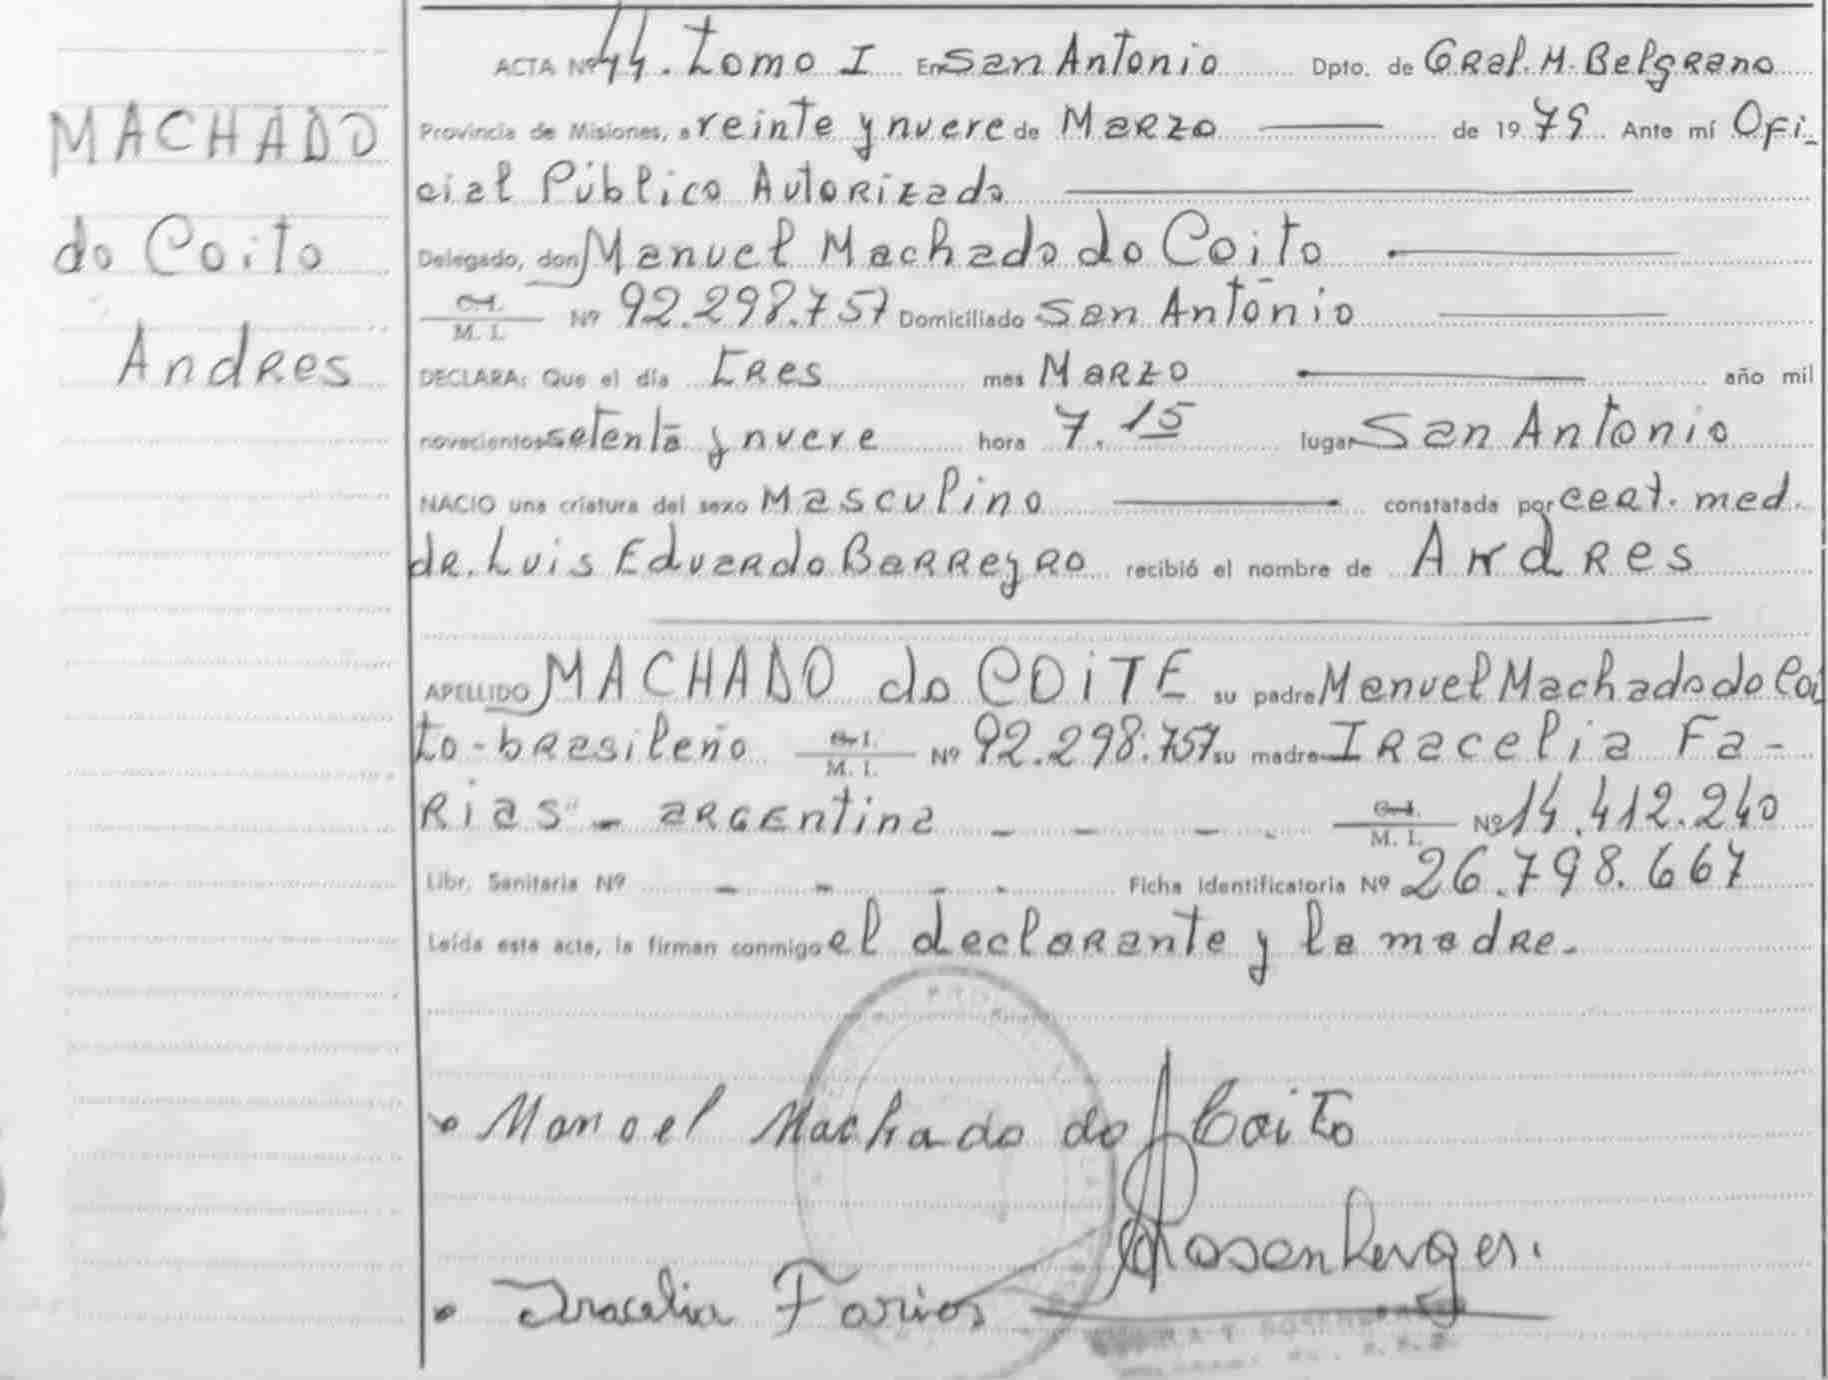 MACHADO
do Coito
Andres
ACTA Nº 44. Tomo I En San Antonio Dpto. de GRal. M. BelgRano
Provincia de Misiones, a veinte y nueve de MaRzo de 1979 Ante mí Ofi-
cial Público AutoRizado
Delegado, don Manuel Machado do Coito
C.I.
M. I. Nº 92.298.757 Domiciliado San Antonio
DECLARA: Que el día tRes mes MaRzo año mil
novecientos setenta y nueve hora 7.15 lugar San Antonio
NACIO una criatura del sexo Masculino constatada por ceRt. med.
dR. Luis EduaRdo BaRReyRo recibió el nombre de AndRes
APELLIDO MACHADO do COiTE su padre Manuel Machado do Coi
to - bRasileño C.I. M. I. Nº 92.298.757 su madre IRacelia Fa-
Rias - aRGEntina C.I. M. I. Nº 14.412.240
Libr. Sanitaria Nº Ficha Identificatoria Nº 26.798.667
Leída esta acta, la firman conmigo el declaRante y la madRe.
Manoel Machado do Coito
Rosenberger.
Iracelia Farias